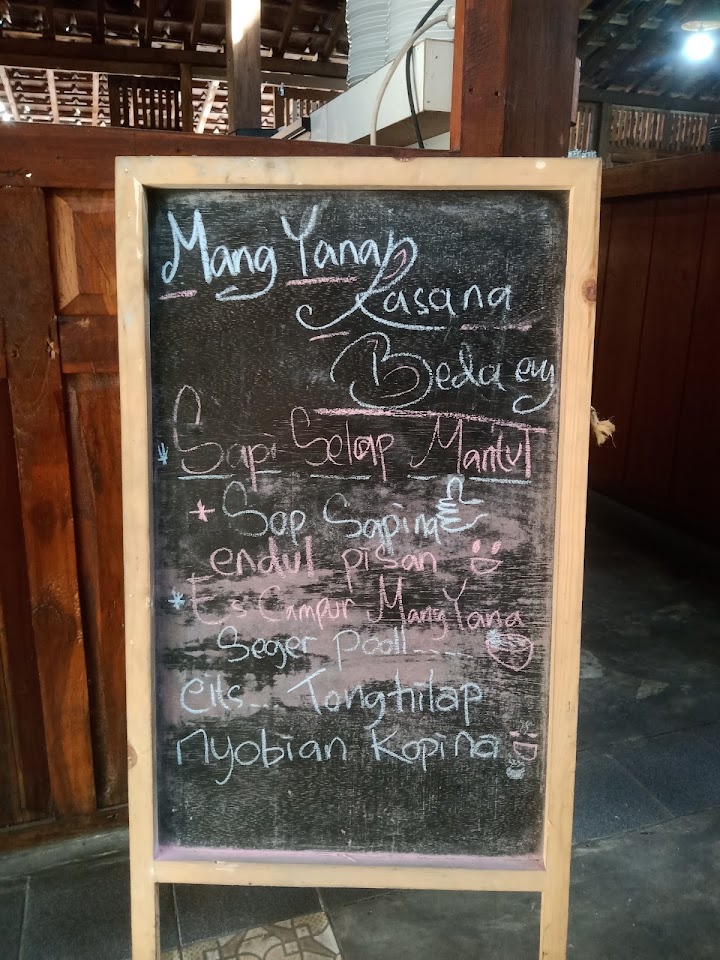 Mang Yana
Rasana
Beda euy
Sapi Selap Mantul
* Sop Sapina
endul pisan
* Es Campur Mang Yana
Seger Pooll....
Eits... Tong hilap
Nyobian Kopina